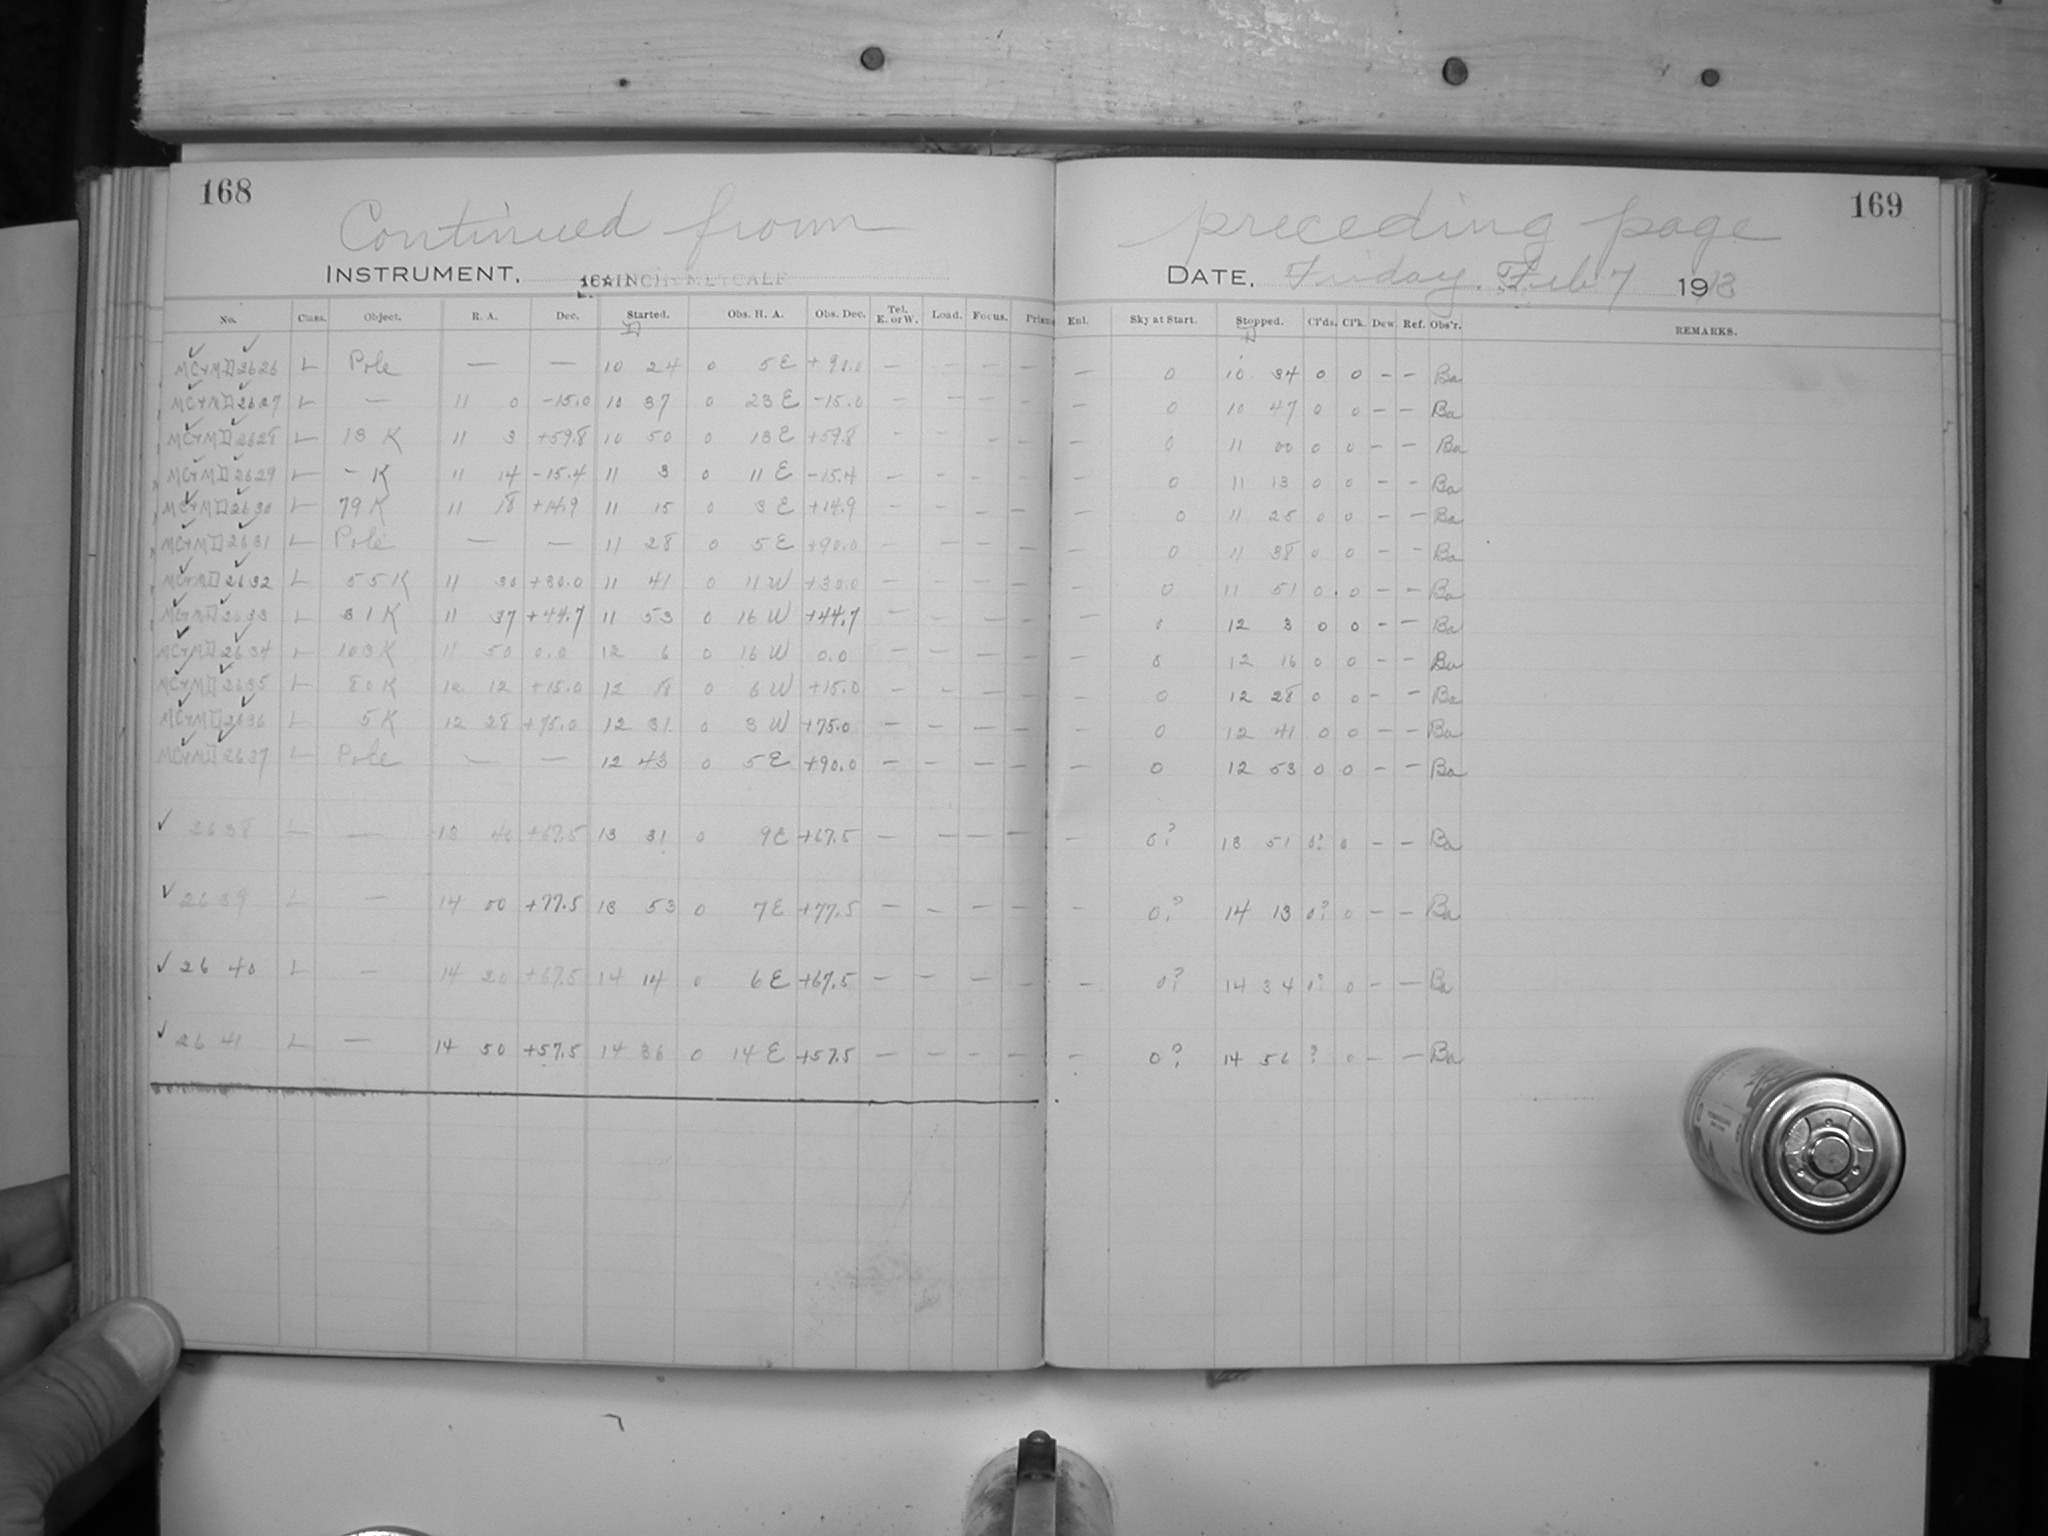 168
169
Continued from preceding page
INSTRUMENT, 16-INCH METCALF
DATE, Friday, Feb 7 1913
No. Class. Object. R. A. Dec. Started. Obs. H. A. Obs. Dec. Tel. E. or W. Load. Focus. Prism Enl. Sky at Start. Stopped. Cl'ds. Cl'k. Dew. Ref. Obs'r. REMARKS.
MC+MD 2626 L Pole — — 10 24 0 5 E +90.0 — — — — — 0 10 34 0 0 – – Ba
MC+MD 2627 L — 11 0 -15.0 10 37 0 23 E -15.0 — — — — — 0 10 47 0 0 – – Ba
MC+MD 2628 L 13 K 11 3 +59.8 10 50 0 13 E +59.8 — — — — — 0 11 00 0 0 – – Ba
MC+MD 2629 L – K 11 14 -15.4 11 3 0 11 E -15.4 — — — — — 0 11 13 0 0 – – Ba
MC+MD 2630 L 79 K 11 18 +14.9 11 15 0 3 E +14.9 — — — — — 0 11 25 0 0 – – Ba
MC+MD 2631 L Pole — — 11 28 0 5 E +90.0 — — — — — 0 11 38 0 0 – – Ba
MC+MD 2632 L 55 K 11 30 +30.0 11 41 0 11 W +30.0 — — — — — 0 11 51 0 0 – – Ba
MC+MD 2633 L 31 K 11 37 +44.7 11 53 0 16 W +44.7 — — — — — 0 12 3 0 0 – – Ba
MC+MD 2634 L 103 K 11 50 0.0 12 6 0 16 W 0.0 — — — — — 0 12 16 0 0 – – Ba
MC+MD 2635 L 80 K 12 12 +15.0 12 18 0 6 W +15.0 — — — — — 0 12 28 0 0 – – Ba
MC+MD 2636 L 5 K 12 28 +75.0 12 31 0 3 W +75.0 — — — — — 0 12 41 0 0 – – Ba
MC+MD 2637 L Pole — — 12 43 0 5 E +90.0 — — — — — 0 12 53 0 0 – – Ba
✓ 2638 L — 13 40 +67.5 13 31 0 9 E +67.5 — — — — — 0? 13 51 0? 0 – – Ba
✓ 2639 L — 14 00 +77.5 13 53 0 7 E +77.5 — — — — — 0? 14 13 0? 0 – – Ba
✓ 2640 L — 14 20 +67.5 14 14 0 6 E +67.5 — — — — — 0? 14 34 0? 0 – – Ba
✓ 2641 L — 14 50 +57.5 14 36 0 14 E +57.5 — — — — — 0? 14 56 ? 0 – – Ba